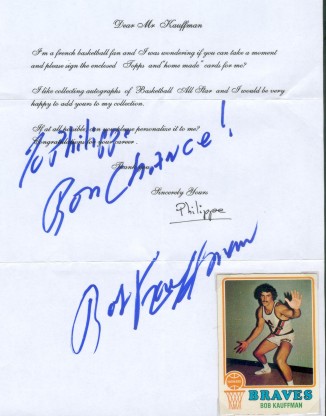 Dear Mr Kauffman
I'm a french basketball fan and I was wondering if you can take a moment
and please sign the enclosed Topps and "home made" cards for me?
I like collecting autographs of Basketball All Star and I would be very
happy to add yours to my collection.
If at all possible can you please personalize it to me?
Congratulations for your career.
To Philippe
Bon Chance!
Sincerely Yours
Philippe
Bob Kauffman
BRAVES
BOB KAUFFMAN